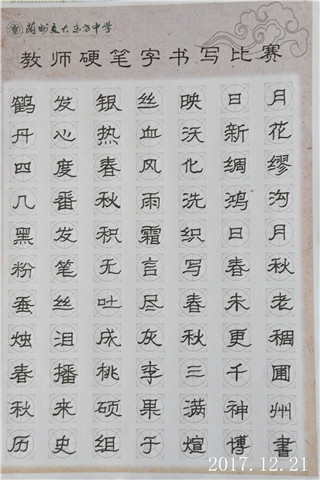 蘭州交大东方中学
教师硬笔字书写比赛
鹤发银丝映日月
丹心热血沃新花
四度春风化绸缪
几番秋雨洗鸿沟
黑发积霜织日月
粉笔无言写春秋
蚕丝吐尽春未老
烛泪成灰秋更稠
春播桃李三千圃
秋来硕果满神州
历史组于煊博書
2017.12.21